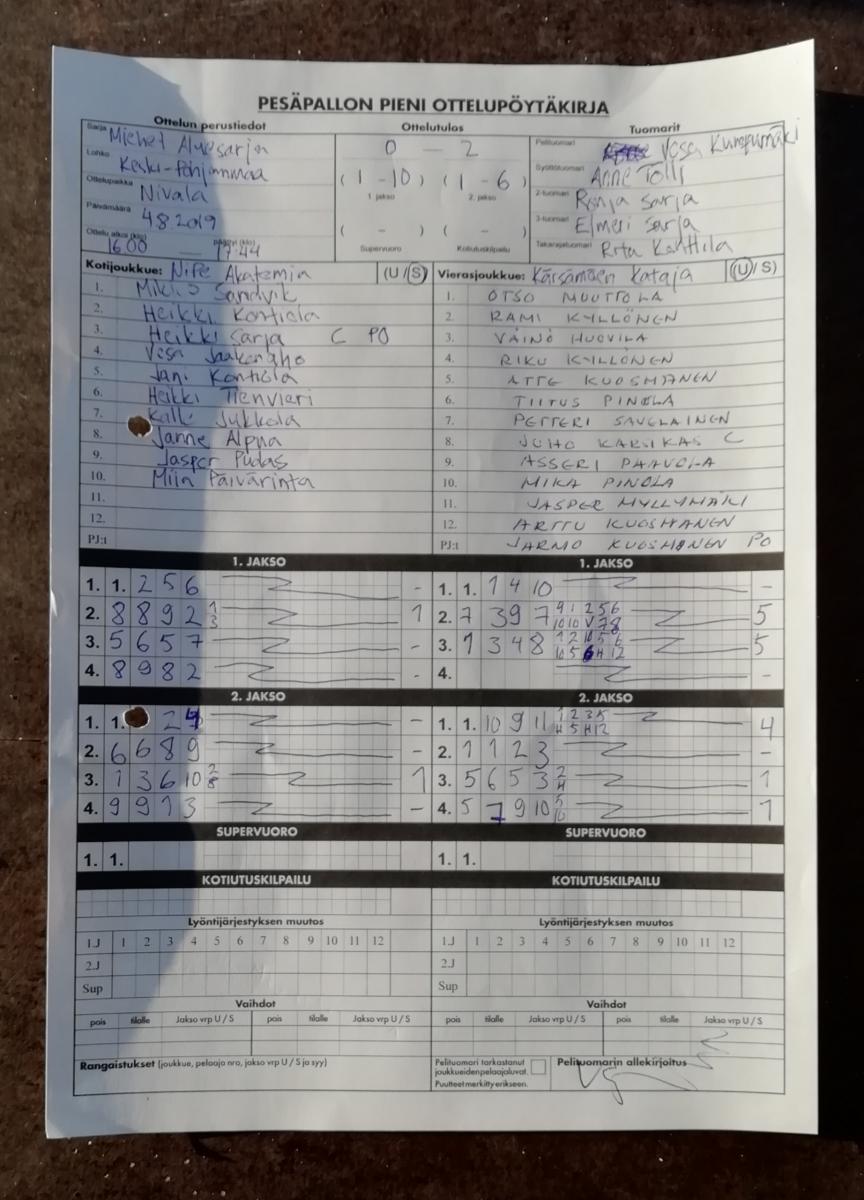 PESÄPALLON PIENI OTTELUPÖYTÄKIRJA
Ottelun perustiedot Ottelutulos Tuomarit
Sarja Miehet Aluesarja 0 - 2 Pelituomari Vesa Kumpumäki
Lohko Keski-Pohjanmaa (1 - 10) (1 - 6) Syöttötuomari Anne Tolli
Ottelupaikka Nivala 1. jakso 2. jakso 2-tuomari Ronja Sarja
Päivämäärä 4.8.2019 ( - ) ( - ) 3-tuomari Elmeri Sarja
Ottelu alkoi (klo) 16.00 — päättyi (klo) 17.44 Supervuoro Kotiutuskilpailu Takarajatuomari Rita Konttila
Kotijoukkue: NiPe Akatemia (U/S) Vierasjoukkue: Kärsämäen Kataja (U/S)
1. Sandvik 1. OTSO MUUTTOLA
2. Heikki Kontiola 2. RAMI KYLLÖNEN
3. Heikki Sarja C PO 3. VÄINÖ HUOVILA
4. Vesa Jaakonaho 4. RIKU KYLLÖNEN
5. Jani Kontiola 5. ATTE KUOSMANEN
6. Heikki Tienvieri 6. TIITUS PINOLA
7. Kalle Jukkola 7. PETTERI SAVELAINEN
8. Janne Alpua 8. JUHO KARSIKAS C
9. Jasper Pudas 9. ASSERI PAAVOLA
10. Päivärinta 10. MIKA PINOLA
11. 11. JASPER MYLLYMÄKI
12. 12. ARTTU KUOSMANEN
PJ:t PJ:t JARMO KUOSMANEN PO
1. JAKSO 1. JAKSO
1. 1. 2 5 6 - 1. 1. 1 4 10 -
2. 8 8 9 2 1 3 1 2. 7 3 9 7 9 1 2 5 6 10 10 V 7 8 5
3. 5 6 5 7 - 3. 1 3 4 8 1 2 10 5 6 10 5 6 H 12 5
4. 8 9 8 2 - 4. -
2. JAKSO 2. JAKSO
1. 1. 2 4 - 1. 1. 10 9 11 1 2 3 5 H 5 H 12 4
2. 6 6 8 9 - 2. 1 1 2 3 -
3. 1 3 6 10 2 8 1 3. 5 6 5 3 2 H 1
4. 9 9 1 3 - 4. 5 7 9 10 5 10 1
SUPERVUORO SUPERVUORO
1. 1. 1. 1.
KOTIUTUSKILPAILU KOTIUTUSKILPAILU
Lyöntijärjestyksen muutos Lyöntijärjestyksen muutos
1.J 1 2 3 4 5 6 7 8 9 10 11 12 1.J 1 2 3 4 5 6 7 8 9 10 11 12
2.J 2.J
Sup Sup
Vaihdot Vaihdot
pois tilalle Jakso vrp U / S pois tilalle Jakso vrp U / S pois tilalle Jakso vrp U / S pois tilalle Jakso vrp U / S
Rangaistukset (joukkue, pelaaja nro, jakso vrp U / S ja syy) Pelituomari tarkastanut Pelituomarin allekirjoitus
joukkueiden pelaajaluvat.
Puutteet merkitty erikseen.